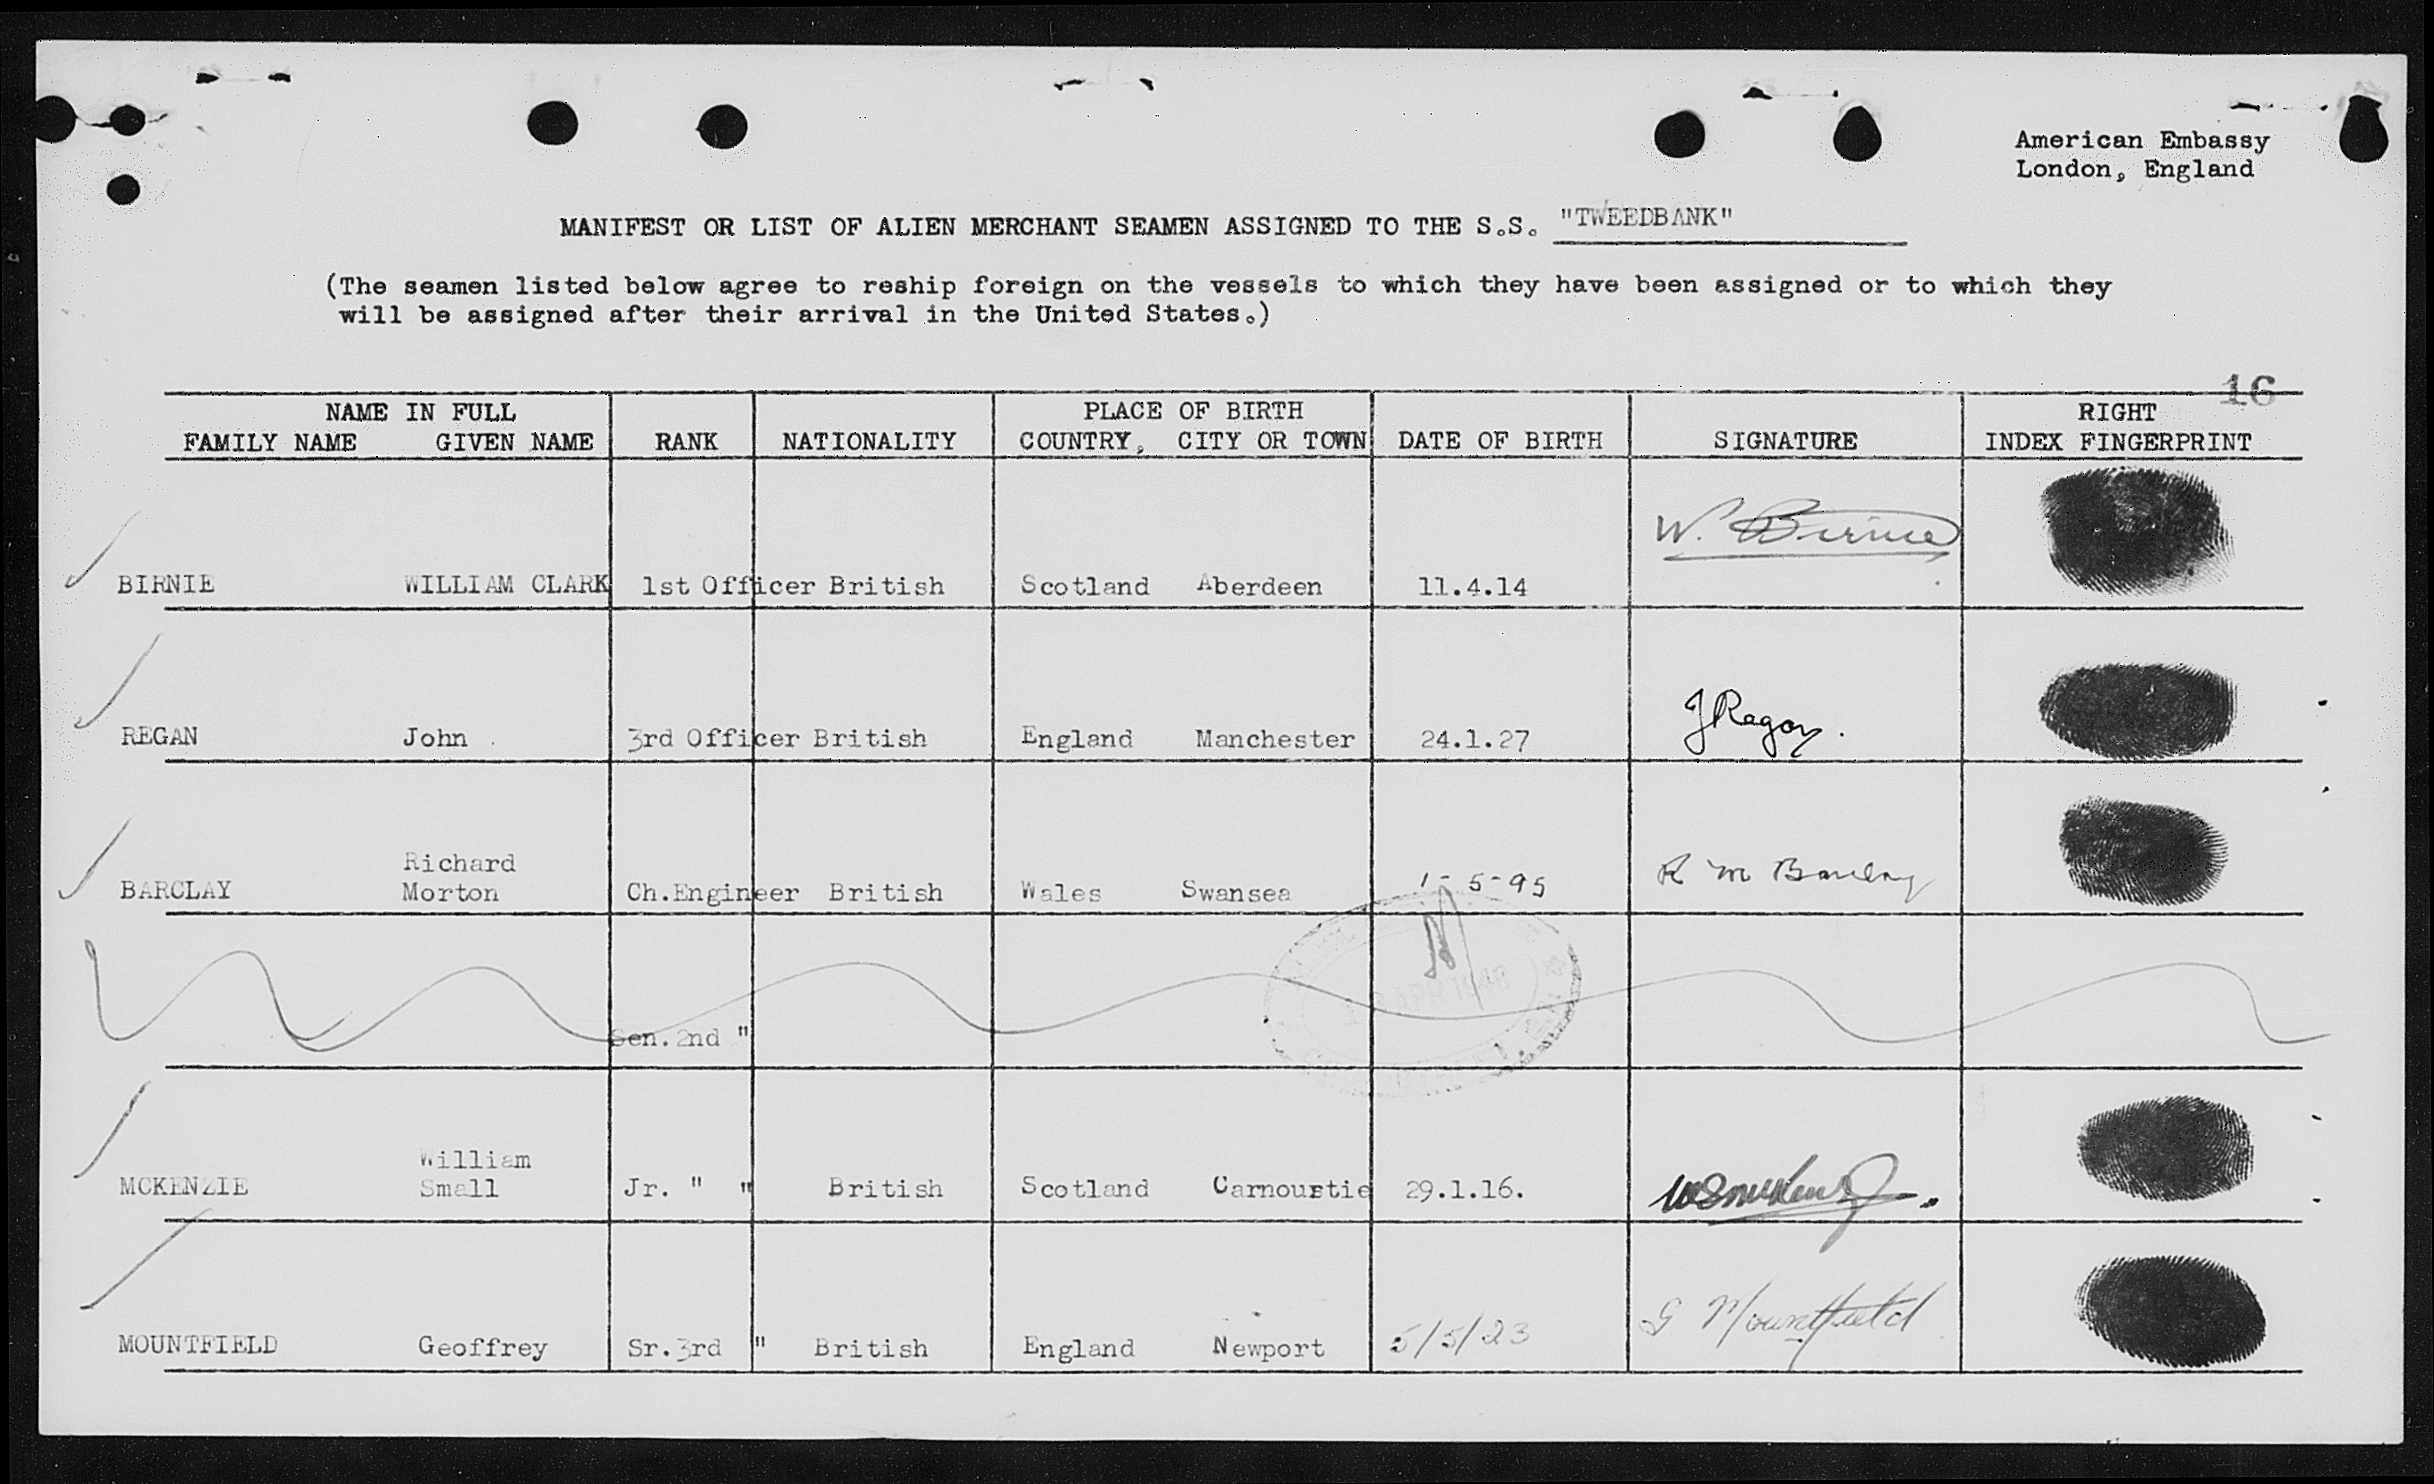 American Embassy
London, England
MANIFEST OR LIST OF ALIEN MERCHANT SEAMEN ASSIGNED TO THE S.S. "TWEEDBANK"
(The seamen listed below agree to reship foreign on the vessels to which they have been assigned or to which they
will be assigned after their arrival in the United States.)
16
NAME IN FULL PLACE OF BIRTH RIGHT
FAMILY NAME GIVEN NAME RANK NATIONALITY COUNTRY, CITY OR TOWN DATE OF BIRTH SIGNATURE INDEX FINGERPRINT
W. Birnie
BIRNIE WILLIAM CLARK 1st Officer British Scotland Aberdeen 11.4.14
J Regan.
REGAN John 3rd Officer British England Manchester 24.1.27
Richard
BARCLAY Morton Ch.Engineer British Wales Swansea 1-5-95 R M Barclay
Sen. 2nd "
William
MCKENZIE Small Jr. " " British Scotland Carnoustie 29.1.16. WSMcKenzie.
G Mountfield
MOUNTFIELD Geoffrey Sr.3rd " British England Newport 5/5/23